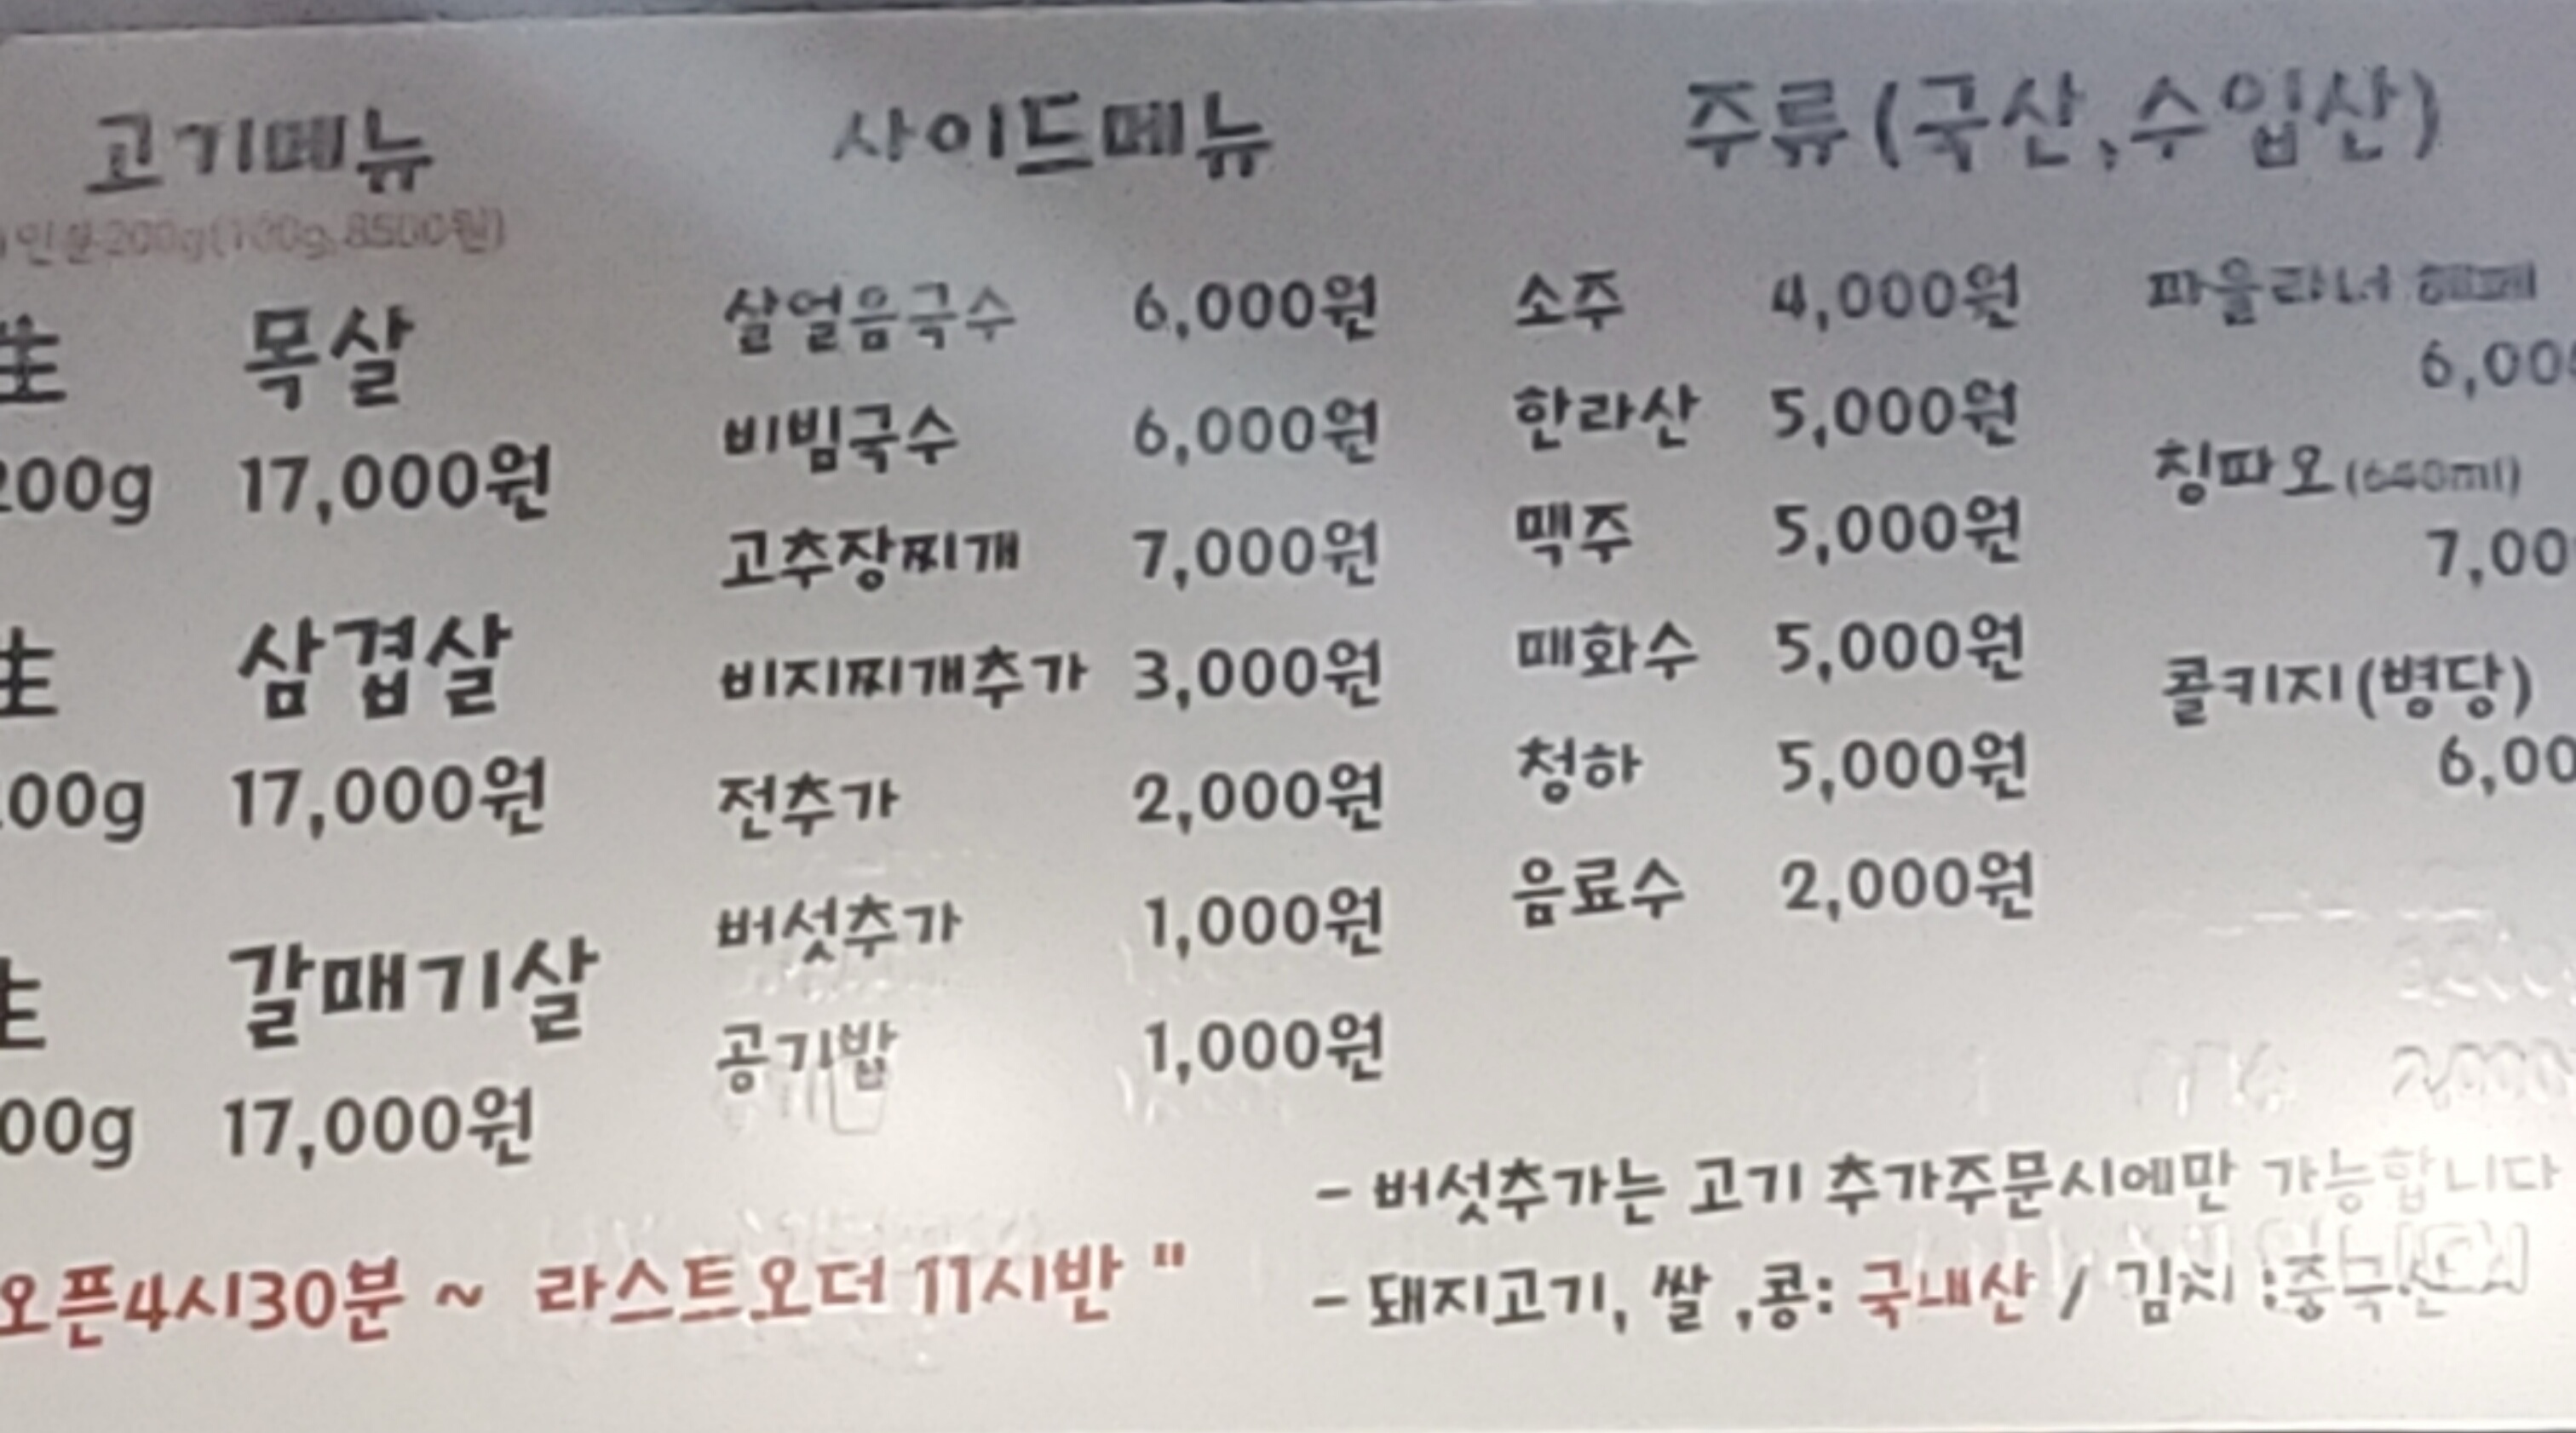 고기메뉴
1인분200g(100g,8500원)
生 목살
200g 17,000원
生 삼겹살
200g 17,000원
生 갈매기살
00g 17,000원
사이드메뉴
살얼음국수 6,000원
비빔국수 6,000원
고추장찌개 7,000원
비지찌개추가 3,000원
전추가 2,000원
버섯추가 1,000원
공기밥 1,000원
주류(국산,수입산)
소주 4,000원
한라산 5,000원
맥주 5,000원
매화수 5,000원
청하 5,000원
음료수 2,000원
파울라너 헤페
6,000
칭따오(640ml)
7,00
콜키지(병당)
6,00
오픈4시30분 ~ 라스트오더 11시반 "
- 버섯추가는 고기 추가주문시에만 가능합니다
- 돼지고기, 쌀 ,콩: 국내산 / 김치 :중국산